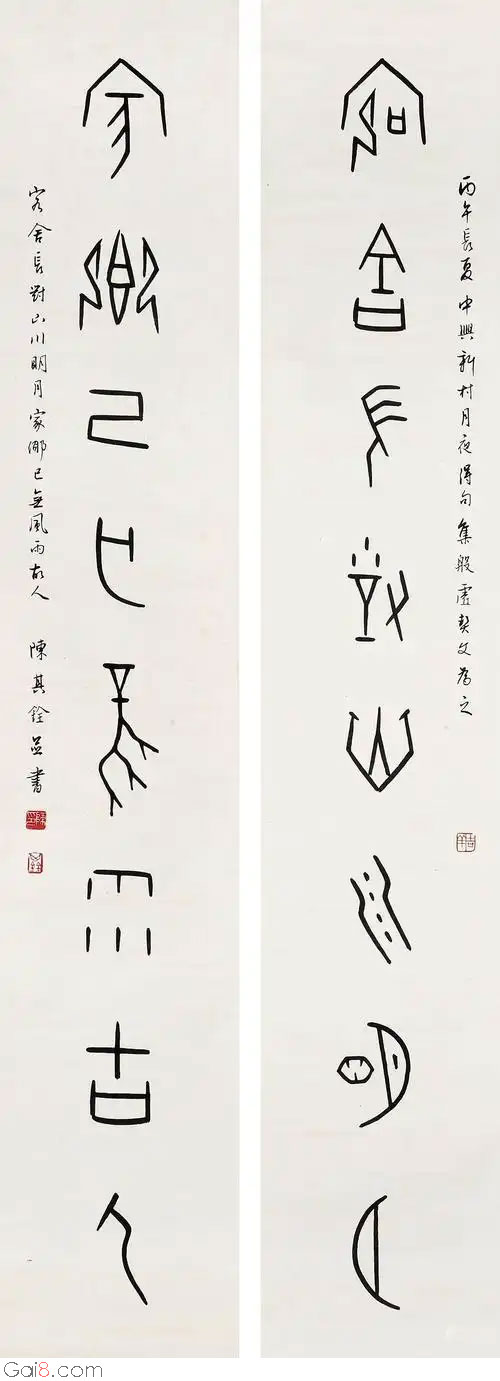 丙午長夏中興新村月夜得句集殷虛契文為之
客舍長對山川明月
家鄉已亡風雨古人
客舍長對山川明月家鄉已無風雨故人 陳其銓並書
Gai8.com